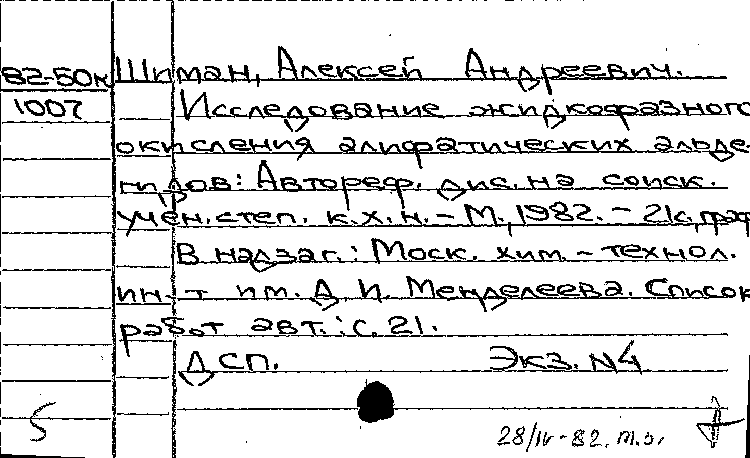 82-50к Шиман, Алексей Андреевич.
1007 Исследование жидкофазного
окисления алифатических альде-
гидов: Автореф. дис. на соиск.
учен. степ. к.х.н. - М., 1982. - 21с, граф
В надзаг.: Моск. хим. - технол.
ин-т им. Д. И. Менделеева. Список
работ авт.: с. 21.
ДСП. Экз. N4
5 28/IV-82. т.з.